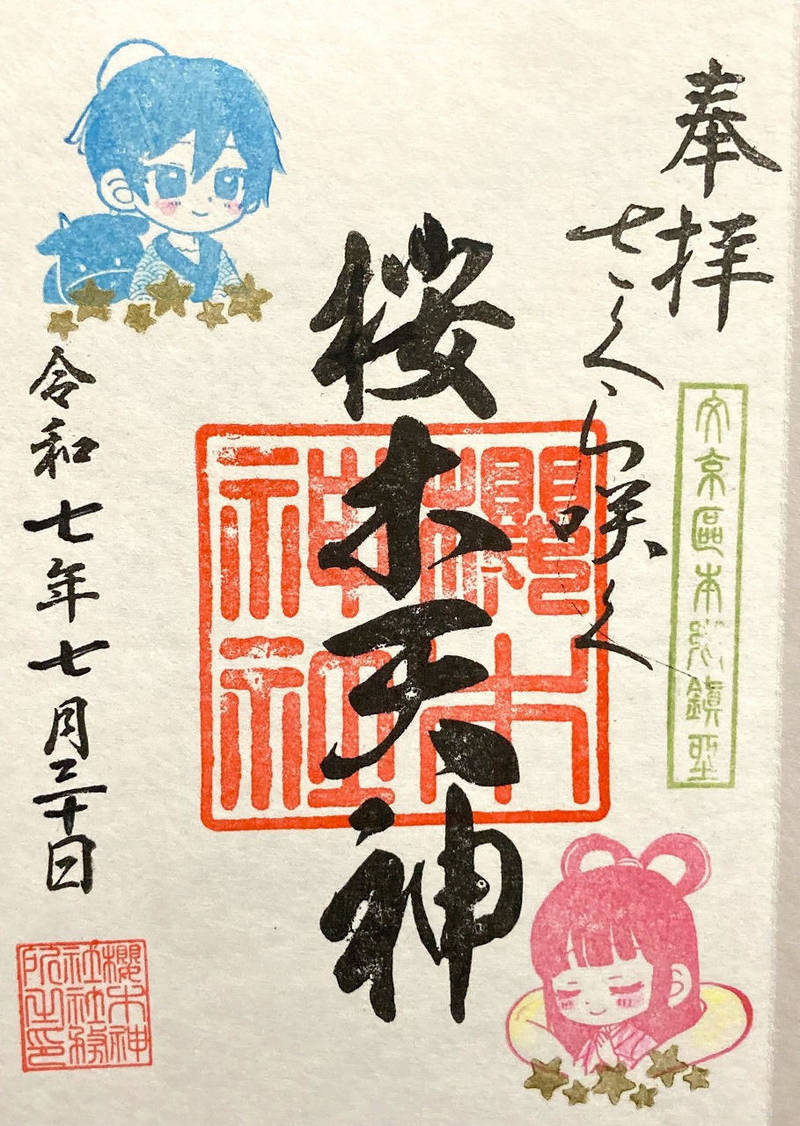 奉拝
さくら咲く
文京區本郷鎮坐
桜木天神
櫻木
神社
令和七年七月三十日
櫻木神
社社務
所之印